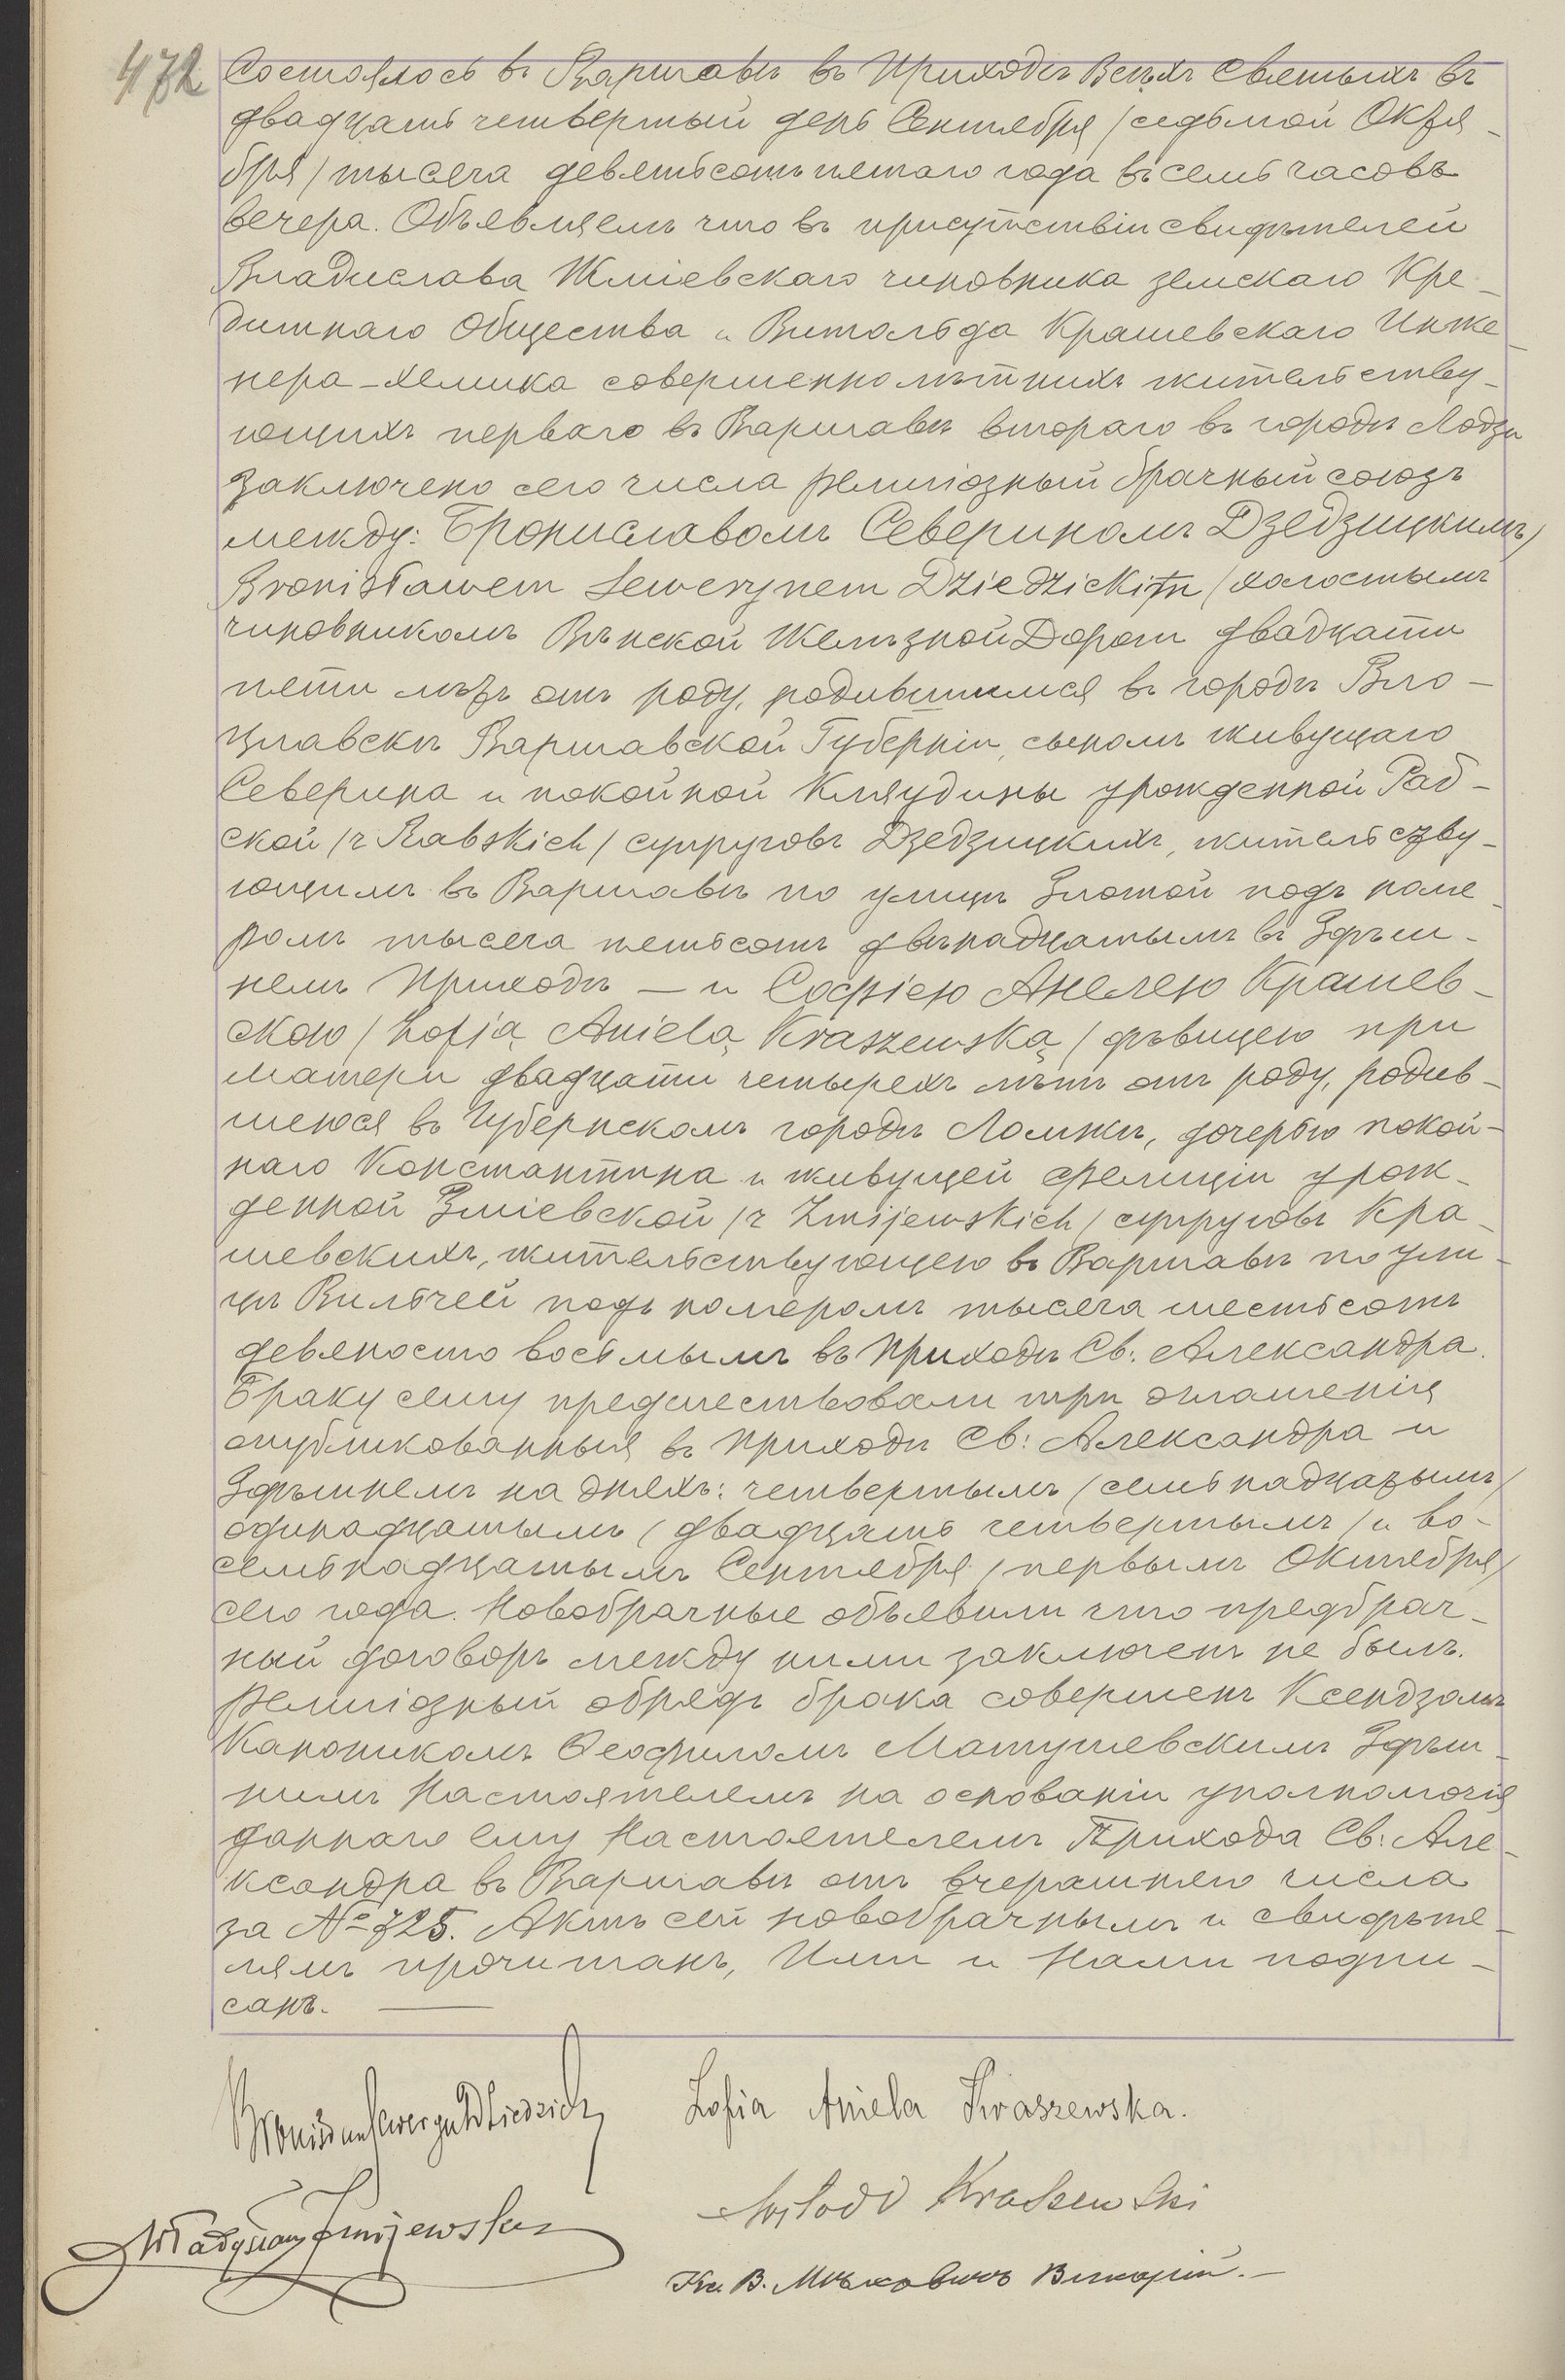 472 Состоялось въ Варшавѣ въ Приходѣ Всѣхъ Святыхъ въ
двадцать четвертый день Сентября /седьмой Октя-
бря/ тысяча девятьсотъ пятаго года въ семь часовъ
вечера. Объявляемъ что въ присутствіи свидѣтелей
Владислава Жміевскаго чиновника земскаго Кре-
дитнаго Общества и Витольда Крашевскаго Инже-
нера-химика совершеннолѣтнихъ жительству-
ющихъ перваго въ Варшавѣ втораго въ городѣ Лодзи
заключено сего числа религіозный брачный союзъ
между: Брониславомъ Севериномъ Дзедзицкимъ/
Bronisławem Sewerynem Dziedzickim /холостымъ
чиновникомъ Вѣнской Желѣзной Дороги двадцати
пяти лѣтъ отъ роду, родившимся въ городѣ Вло-
цлавскѣ Варшавской Губерніи, сыномъ живущаго
Северина и покойной Клаудины урожденной Раб-
ской /z Rabskich/ супруговъ Дзедзицкихъ, жительству-
ющимъ въ Варшавѣ по улицѣ Злотой подъ номе-
ромъ тысяча пятьсотъ двѣнадцатымъ въ Здѣш-
немъ Приходѣ — и Софіею Анелею Крашев-
скою /Zofią Anielą Kraszewską/ дѣвицею при
матери двадцати четырехъ лѣтъ отъ роду, родив-
шеюся въ Губернскомъ городѣ Ломжѣ, дочерью покой-
наго Константина и живущей Фелиціи урож-
денной Зміевской /z Zmijewskich/ супруговъ Кра-
шевскихъ, жительствующею въ Варшавѣ по ули-
цѣ Вильчей подъ номеромъ тысяча шестьсотъ
девяносто восьмымъ въ Приходѣ Св: Александра.
Браку сему предшествовали три оглашенія
опубликованныя въ Приходѣ Св: Александра и
Здѣшнемъ на дняхъ: четвертымъ /семьнадцатымъ/
одинадцатымъ /двадцать четвертымъ/ и во-
семьнадцатымъ Сентября /первымъ Октября/
сего года. Новобрачные объявили что предбрач-
ный договоръ между ними заключенъ не былъ.
Религіозный обрядъ брака совершенъ Ксендзомъ
Каноникомъ Ѳеофиломъ Матушевскимъ Здѣш-
нимъ Настоятелемъ на основаніи уполномочія
даннаго ему Настоятелемъ Прихода Св: Але-
ксандра въ Варшавѣ отъ вчерашняго числа
за № 725. Актъ сей новобрачнымъ и свидѣте-
лямъ прочитанъ, Ими и Нами подпи-
санъ. —
Bronisław Seweryn Dziedzicki Zofia Aniela Kraszewska.
Witold Kraszewski
Władysław Żmijewski
Кс. В. Викарій. —